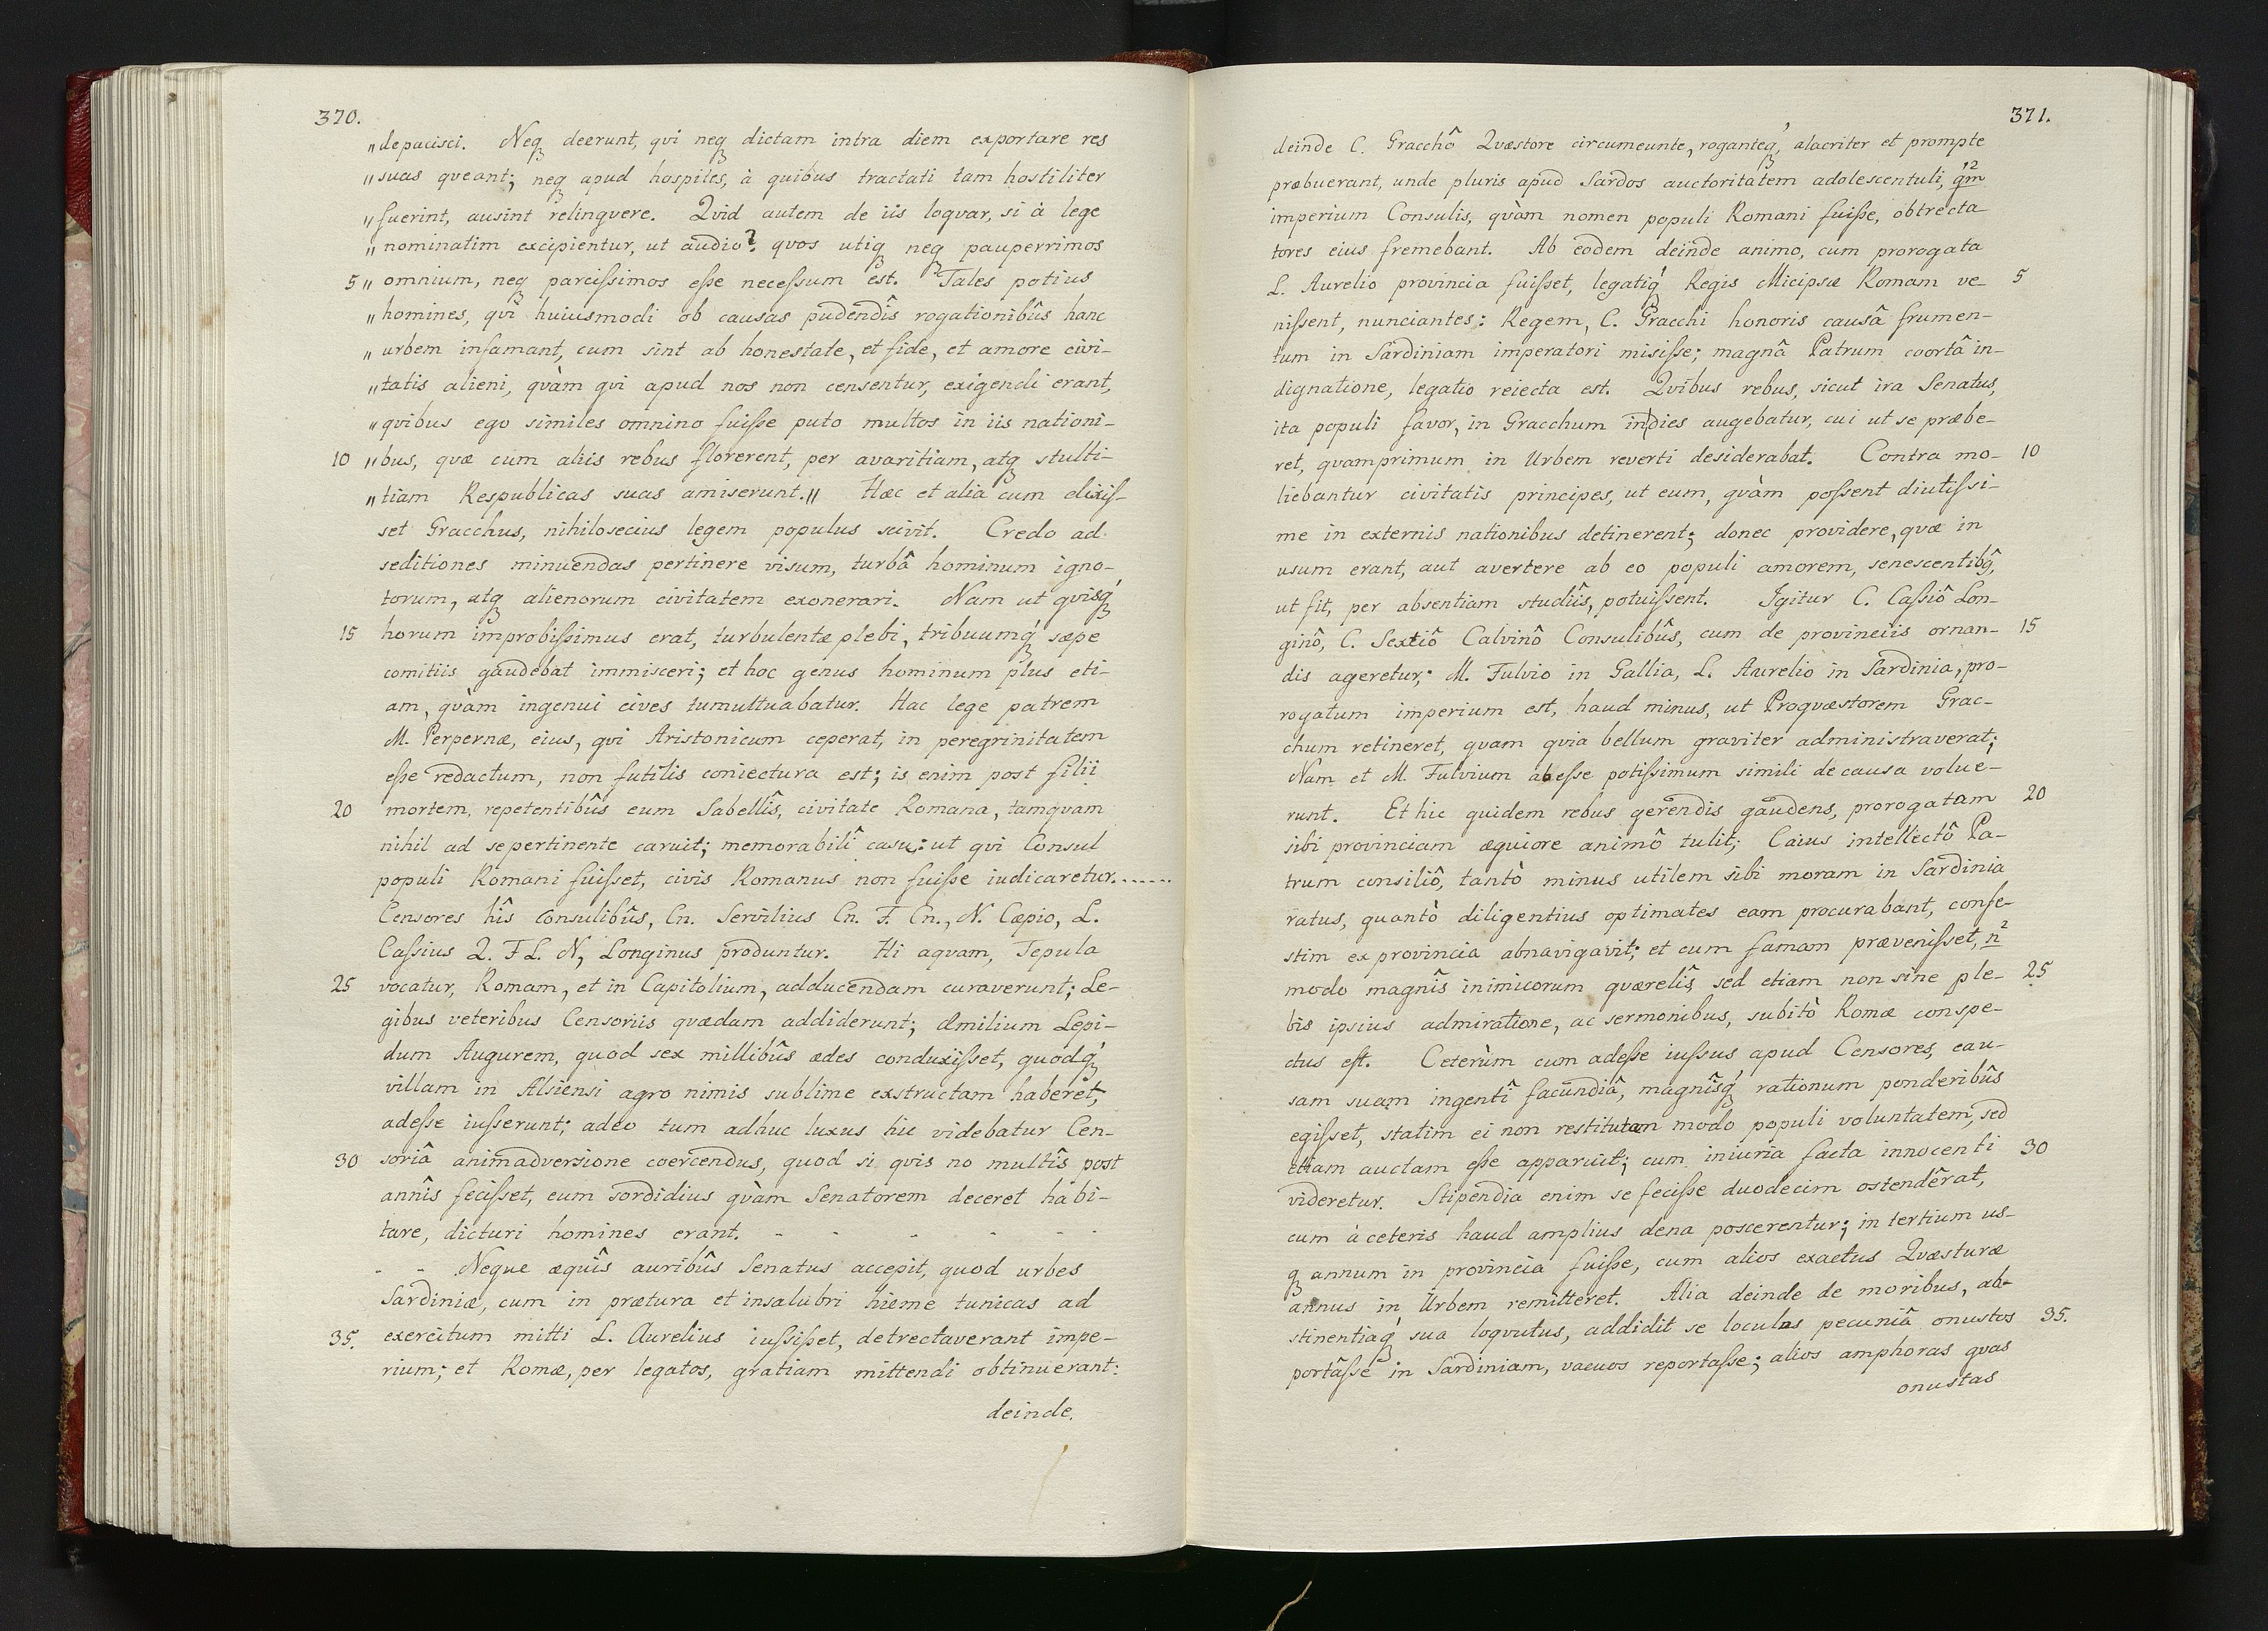 370.
„depacisci. Neq̨ deerunt, qvi neq̨ dictam intra diem exportare res
„suas qveant; neq̨ apud hospites, à quibus tractati tam hostiliter
„fuerint, ausint relinqvere. Qvid autem de iis loqvar, si à lege
„nominatim excipientur, ut audio? quos utiq̨ neq̨ pauperrimos
5 „omnium, neq̨ parcissimos esse necessum est. Tales potius
„homines, qvi huiusmodi ob causas pudendîs rogationibûs hanc
„urbem infamant, cum sint ab honestate, et fide, et amore civi-
„tatis alieni, qvàm qvi apud nos non censentur, exigendi erant,
„qvibus ego similes omnino fuisse puto multos in iis nationi-
10 „bus, quæ cum aliis rebus florerent, per avaritiam, atq̨ stulti-
„tiam Respublicas suas amiserunt.„ Hæc et alia cum dixis-
set Gracchus, nihilosecius legem populus scivit. Credo ad
seditiones minuendas pertinere visum, turbâ hominum igno-
torum, atq̨ alienorum civitatem exonerari. Nam ut qvisq̨́
15 horum improbissimus erat, turbulentæ plebi, tribuumq̨́ sæpe
comitiis gaudebat immisceri; et hoc genus hominum plus eti-
am, qvàm ingenui cives tumultuabatur. Hac lege patrem
M. Perpernæ, eius, qvi Aristonicum ceperat, in peregrinitatem
esse redactum, non futilis coniectura est; is enim post filii
20 mortem, repetentibûs eum Sabellîs, civitate Romana, tamqvam
nihil ad se pertinente caruit; memorabilî casu: ut qvi Consul
populi Romani fuisset, civis Romanus non fuisse iudicaretur.......
Censores hîs Consulibûs, Cn. Servilius Cn. F. Cn., N. Cæpio, L.
Cassius Q. F L. N, Longinus produntur. Hi aqvam, Tepula
25 vocatur, Romam, et in Capitolium, adducendam curaverunt; Le-
gibus veteribus Censoriis quædam addiderunt; Æmilium Lepi-
dum Augurem, quod sex millibûs ædes conduxisset, quodq̨́
villam in Alsiensi agro nimis sublime exstructam haberet,
adesse iusserunt; adeo tum adhuc luxus hic videbatur Cen-
30 soriâ animadversione coercendus, quod si qvis no multîs post
annîs fecisset, eum sordidius qvàm Senatorem deceret habi-
tare, dicturi homines erant. - - - - -
- - Neque æquîs auribûs Senatus accepit, quod urbes
Sardiniæ, cum in prætura et insalubri hieme tunicas ad
35. exercitum mitti L. Aurelius iussisset, detrectaverant impe-
rium; et Romæ, per legatos, gratiam mittendi obtinuerant:
deinde.
371.
deinde C. Gracchô Qvæstore circumeunte, roganteq̨́, alacriter et prompte
præbuerant, unde pluris apud Sardos auctoritatem adolescentuli, qm̄ 12
imperium Consulis, qvàm nomen populi Romani fuisse, obtrecta-
tores eius fremebant. Ab eodem deinde animo, cum prorogata
L. Aurelio provincia fuisset, legatiq̨́ Regis Micipsæ Romam ve- 5
nissent, nunciantes: Regem, C. Gracchi honoris causâ frumen-
tum in Sardiniam imperatori misisse; magnâ Patrum coortâ in-
dignatione, legatio reiecta est. Qvibus rebus, sicut ira Senatus,
ita populi favor, in Gracchum in|dies augebatur, cui ut se præbe-
ret, qvamprimum in Urbem reverti desiderabat. Contra mo- 10
liebantur civitatis principes, ut eum, qvàm possent diutissi-
me in externis nationibus detinerent; donec providere, quæ in
usum erant, aut avertere ab eo populi amorem, senescentibq̂,
ut fit, per absentiam studiîs, potuissent. Igitur C. Cassiô Lon-
ginô, C. Sextiô Calvinô Consulibûs, cum de provinciis ornan- 15
dis ageretur; M. Fulvio in Gallia, L. Aurelio in Sardinia, pro-
rogatum imperium est, haud minus, ut Proqvæstorem Grac-
chum retineret, qvam qvia bellum graviter administraverat;
Nam et M. Fulvium abesse potissimum simili de causa volue-
runt. Et hic quidem rebus gerendis gaudens, prorogatam 20
sibi provinciam æquiore animô tulit; Caius intellectô Pa-
trum consiliô, tantò minus utilem sibi moram in Sardinia
ratus, quantò diligentius optimates eam procurabant, confe-
stim ex provincia abnavigavit; et cum famam prævenisset, n̄ 2
modo magnîs inimicorum qværelîs sed etiam non sine ple- 25
bis ipsius admiratione, ac sermonibus, subitò Romæ conspe-
ctus est. Ceterùm cum adesse iussus apud Censores, cau-
sam suam ingentî facundiâ, magnîsq̨́ rationum ponderibûs
egisset, statim ei non restitutam modo populi voluntatem, sed
etiam auctam esse apparuit; cum iniuria facta innocenti 30
videretur. Stipendia enim se fecisse duodecim ostenderat,
cum à ceteris haud amplius dena poscerentur; in tertium us-
q̨ annum in provincia fuisse, cum alios exactus Qvæsturæ
annus in Urbem remitteret. Alia deinde de moribus, ab-
stinentiaq̨́ sua loqvutus, addidit se loculos pecuniâ onustos 35.
portâsse in Sardiniam, vacuos reportasse; alios amphoras qvas
onustas